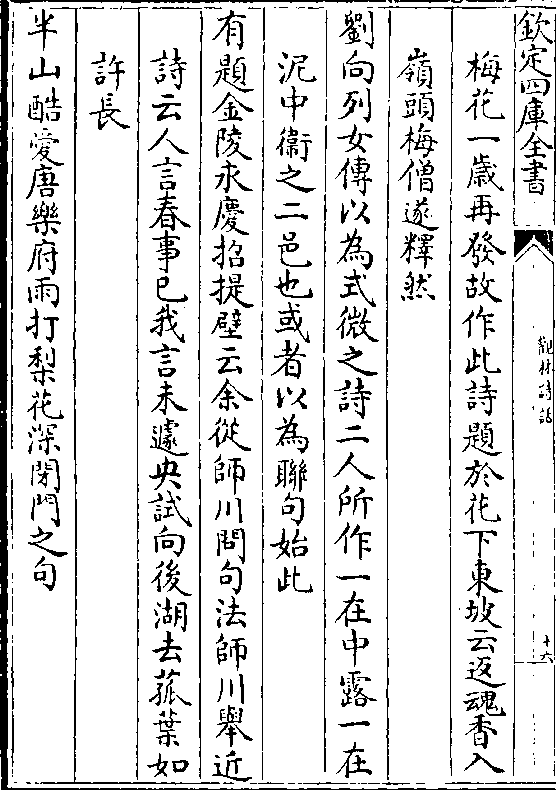 欽定四庫全書
觀林詩話
十六
梅花一歳再發故作此詩題於花下東坡云返魂香入
嶺頭梅僧遂釋然
劉向列女傳以為式微之詩二人所作一在中露一在
泥中衞之二邑也或者以為聯句始此
有題金陵永慶招提壁云余從師川問句法師川舉近
詩云人言春事已我言未遽央試向後湖去菰葉如
許長
半山酷愛唐樂府雨打梨花深閉門之句